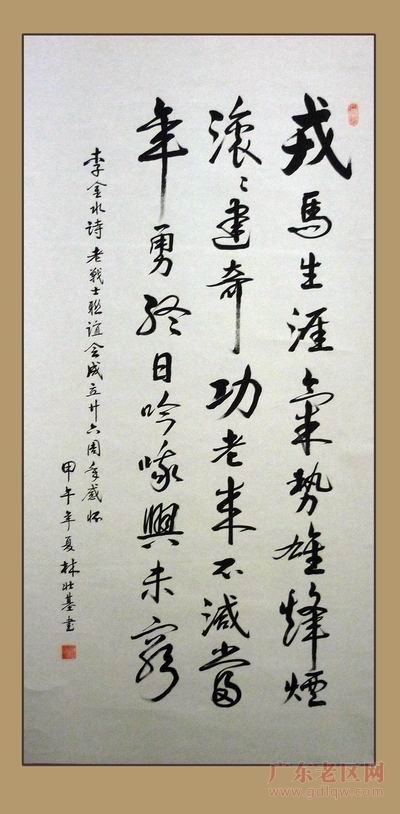 戎馬生涯氣勢雄烽煙
滾〻建奇功老来不減當
年勇終日吟哦興未窮
李金水诗 老戰士聯誼会成立廿六周年感怀
甲午年夏林壮基書
广东老区网
www.gdlqw.com